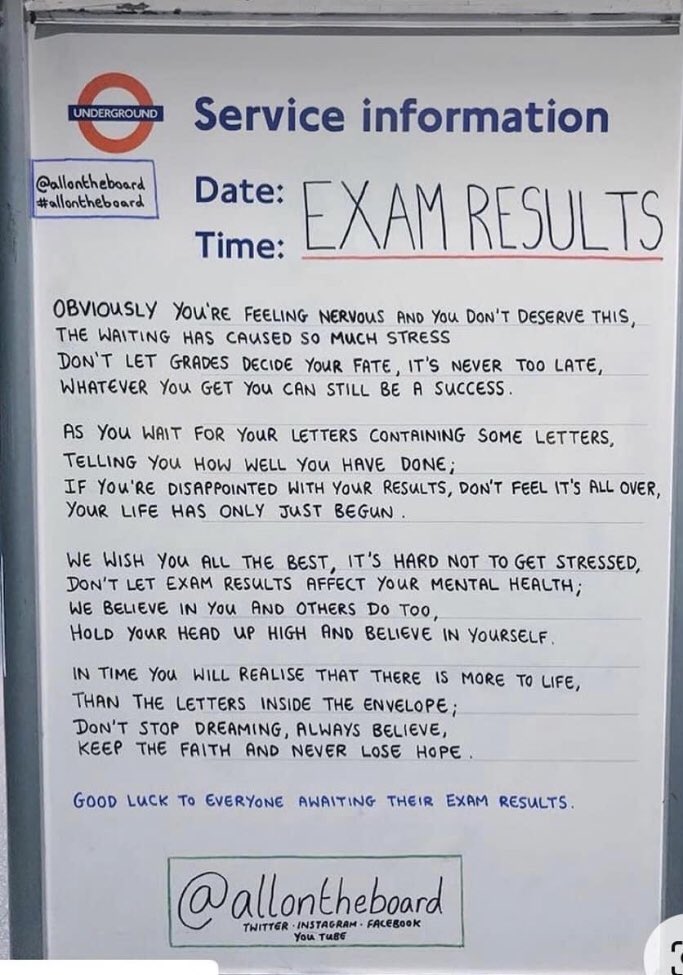 UNDERGROUND
Service information
@allontheboard
#allontheboard
Date:
Time:
EXAM RESULTS
OBVIOUSLY YOU'RE FEELING NERVOUS AND YOU DON'T DESERVE THIS,
THE WAITING HAS CAUSED SO MUCH STRESS
DON'T LET GRADES DECIDE YOUR FATE, IT'S NEVER TOO LATE,
WHATEVER YOU GET YOU CAN STILL BE A SUCCESS.
AS YOU WAIT FOR YOUR LETTERS CONTAINING SOME LETTERS,
TELLING YOU HOW WELL YOU HAVE DONE;
IF YOU'RE DISAPPOINTED WITH YOUR RESULTS, DON'T FEEL IT'S ALL OVER,
YOUR LIFE HAS ONLY JUST BEGUN.
WE WISH YOU ALL THE BEST, IT'S HARD NOT TO GET STRESSED,
DON'T LET EXAM RESULTS AFFECT YOUR MENTAL HEALTH;
WE BELIEVE IN YOU AND OTHERS DO TOO,
HOLD YOUR HEAD UP HIGH AND BELIEVE IN YOURSELF.
IN TIME YOU WILL REALISE THAT THERE IS MORE TO LIFE,
THAN THE LETTERS INSIDE THE ENVELOPE;
DON'T STOP DREAMING, ALWAYS BELIEVE,
KEEP THE FAITH AND NEVER LOSE HOPE.
GOOD LUCK TO EVERYONE AWAITING THEIR EXAM RESULTS.
@allontheboard
TWITTER · INSTAGRAM · FACEBOOK
YOU TUBE